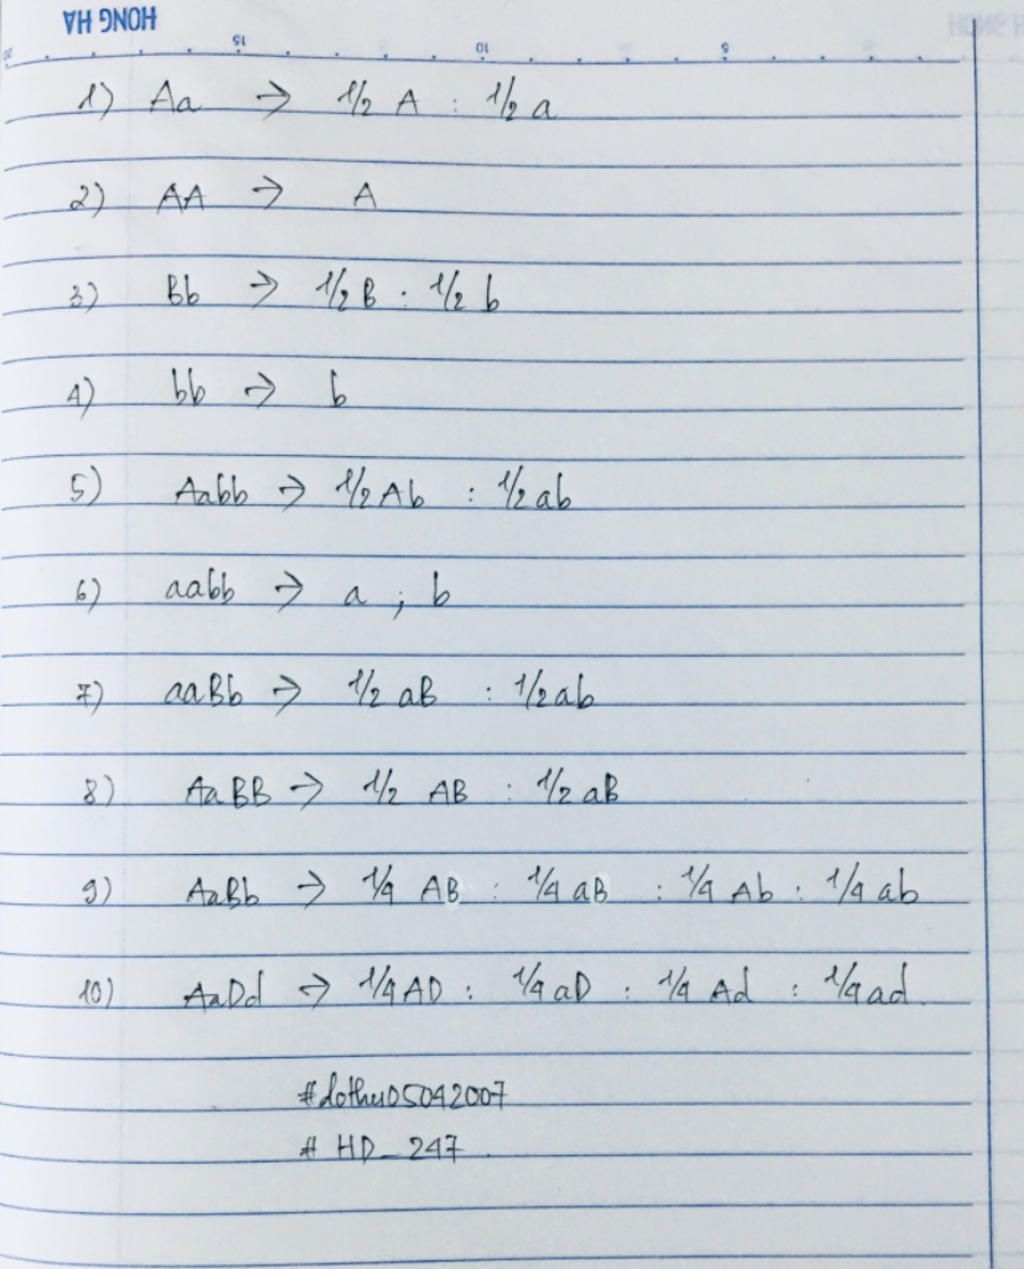 HONG HA
20 15 10 5
1) Aa → 1/2 A : 1/2 a
2) AA → A
3) Bb → 1/2 B : 1/2 b
4) bb → b
5) Aabb → 1/2 Ab : 1/2 ab
6) aabb → a ; b
7) aaBb → 1/2 aB : 1/2 ab
8) AaBB → 1/2 AB : 1/2 aB
9) AaBb → 1/4 AB : 1/4 aB : 1/4 Ab : 1/4 ab
10) AaDd → 1/4 AD : 1/4 aD : 1/4 Ad : 1/4 ad.
#dothu05042007
# HD_247